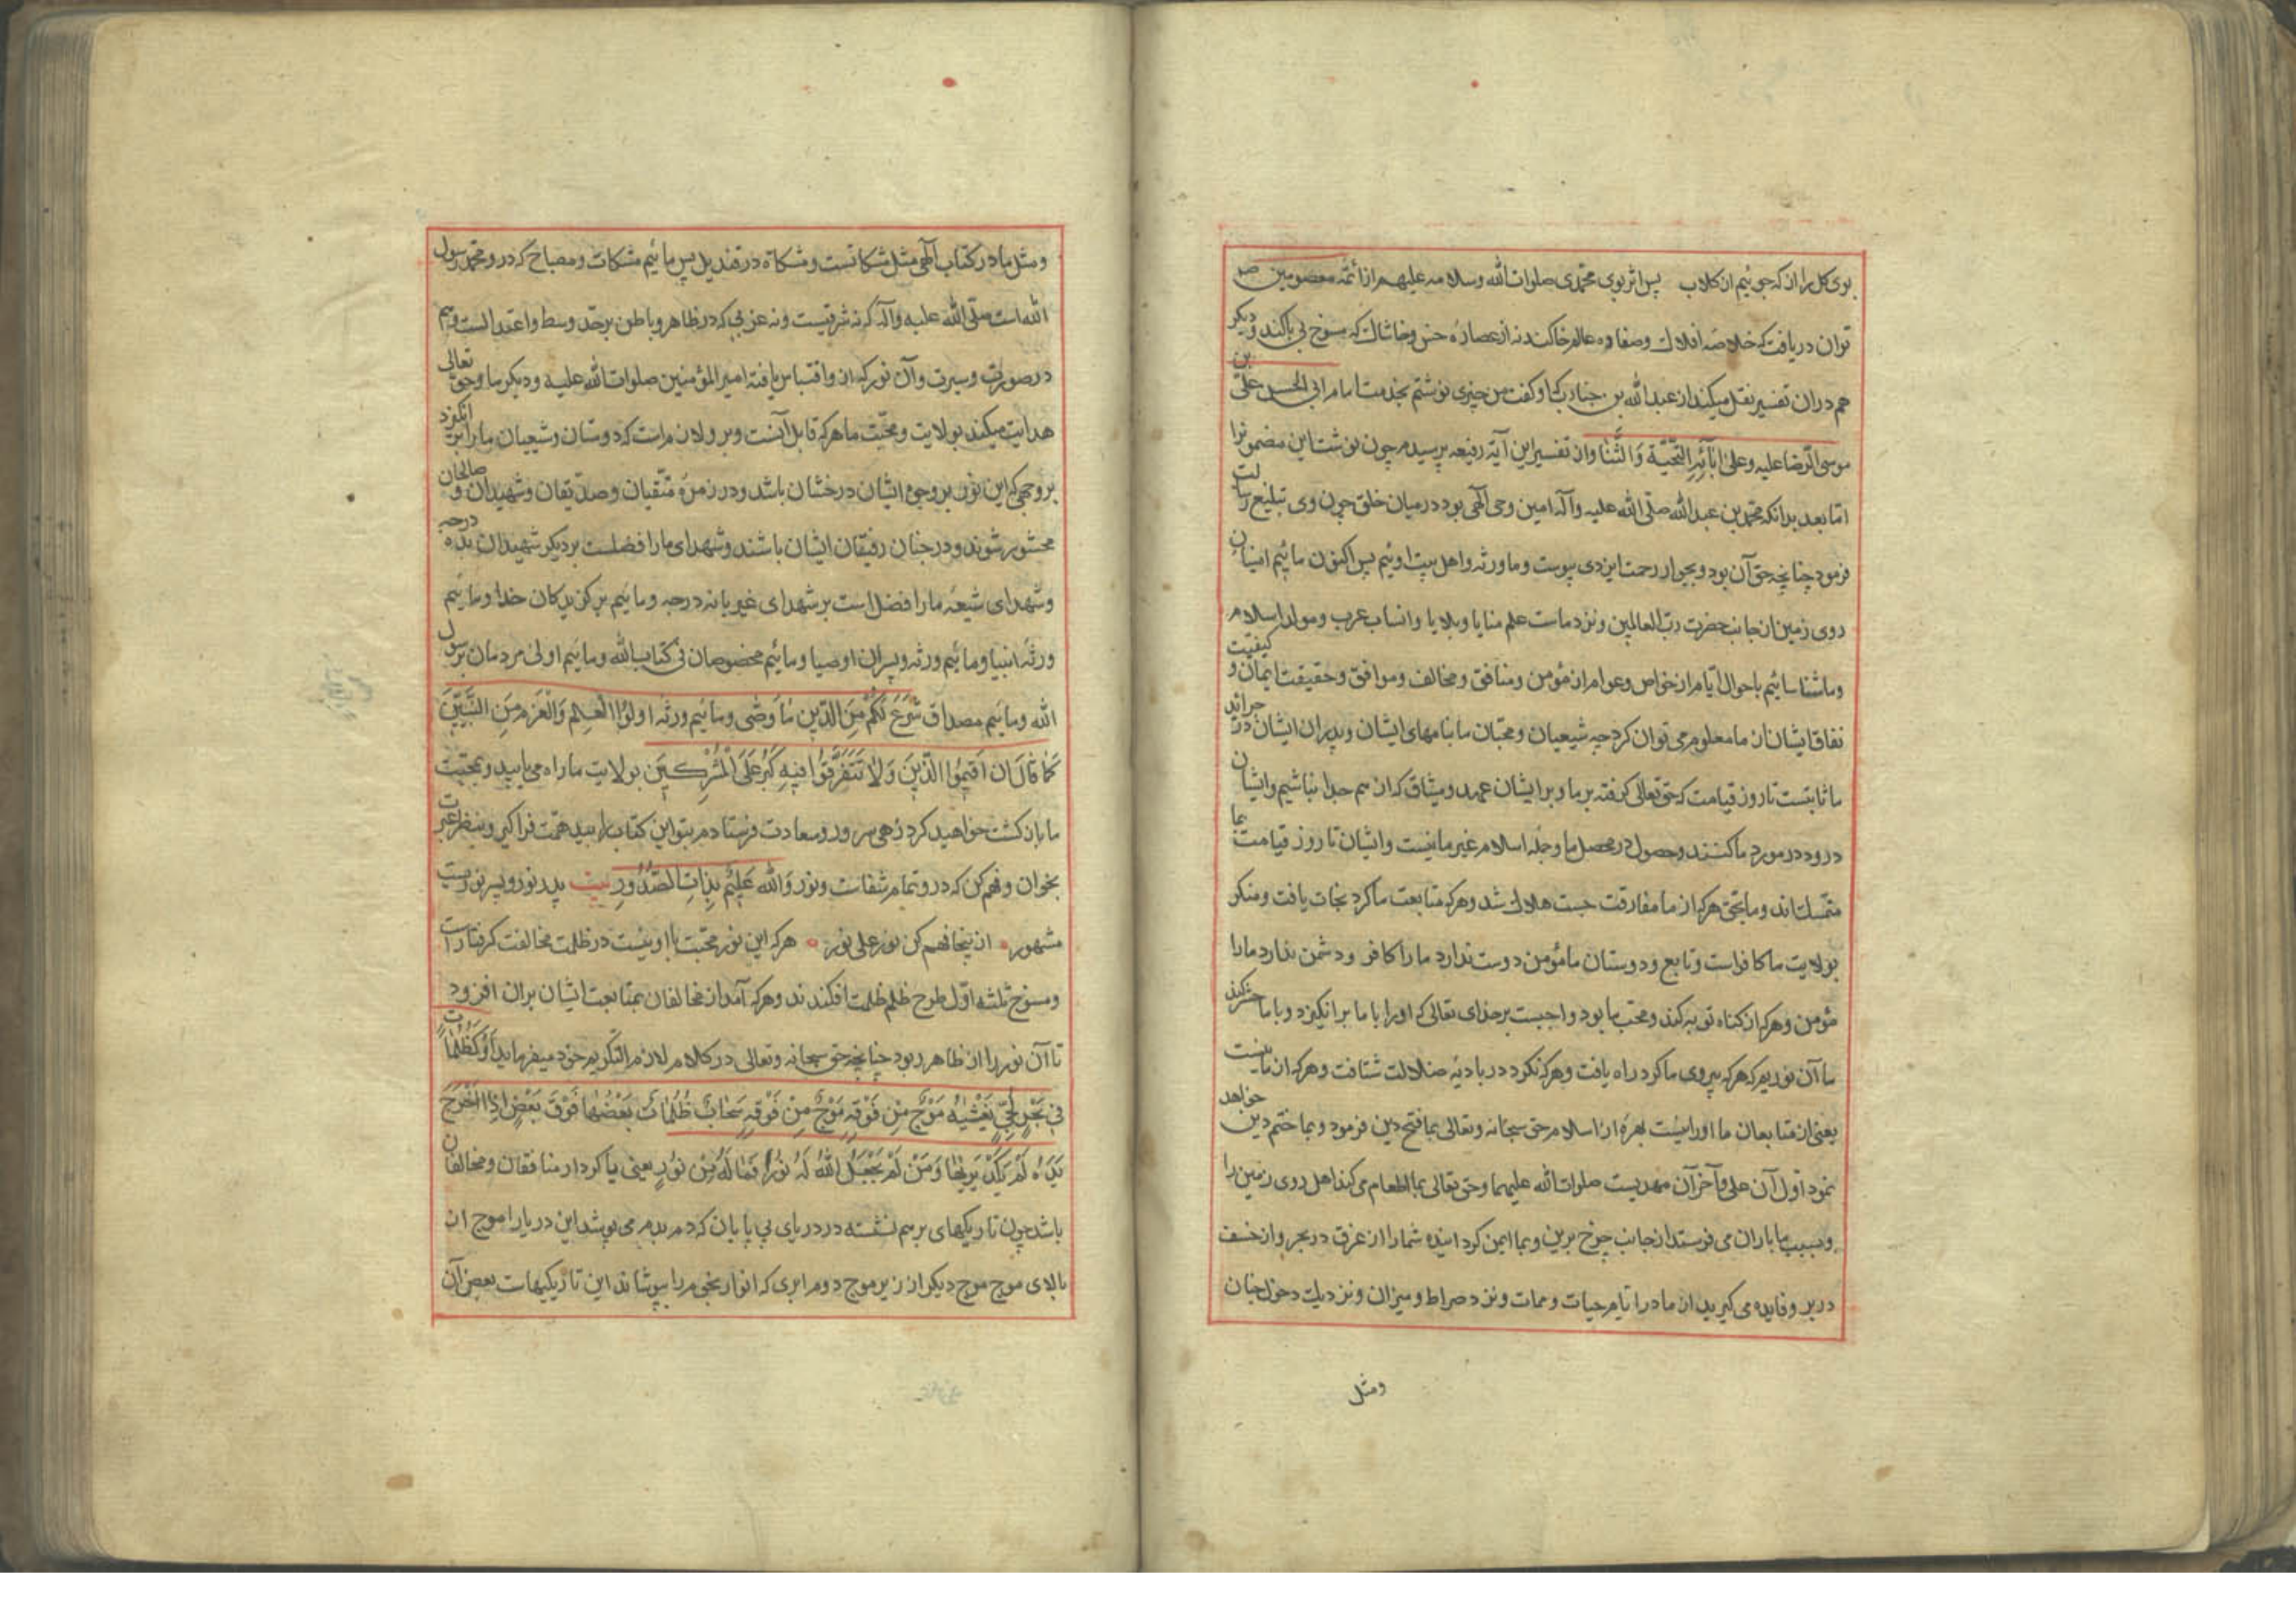 بوی کل را از که جوئیم از کلاب پس اثر بوی محمدی صلوات الله وسلامه علیهم از ائمه معصومین
توان دریافت که خلاصه افلاک وصفاوه عالم خاکند نه از عصاره خس وخاشاک که مسوخ بی باکند ودیکر
هم دران تفسیر نقل میکند از عبد الله بن جنادب کما وکفت من چیزی نوشتم بخدمت امام ابی الحسن علی بن
موسی الرضا علیه وعلی ابآئه التحیة والثنا وان تفسیر این آیه رفیعه پرسیدم چون نوشت این مضمونرا
اما بعد بدانکه محمد بن عبد الله صلی الله علیه وآله امین وحی الهی بود در میان خلق چون وی تبلیغ رسالت
فرمود چنانچه حق آن بود وبجوار رحمت ایزدی پیوست وما ورثه واهل بیت اوئیم پس اکنون مائیم امینان
روی زمین از جانب حضرت رب العالمین ونزد ماست علم منایا وبلایا وانساب عرب ومولد اسلام
وما شناسائیم باحوال ایام از خواص وعوام از مؤمن ومنافق ومخالف وموافق وحقیقت ایمان وکیفیت
نفاق ایشان از ما معلوم می توان کرد چه شیعیان ومحبان ما بنامهای ایشان وپدران ایشان در جرائد
ما ثابتست تا روز قیامت که حق تعالی کرفته بر ما وبر ایشان عهد ومیثاق که از هم جدا نباشیم وایشان
درود در مورد ما کنند وحصول در محصل ما وجله اسلام غیر ما نیست وایشان تا روز قیامت بما
متمسک اند وما بحق هرکه از ما مفارقت جست هلاک شد وهرکه متابعت ما کرد نجات یافت ومنکر
بولایت ما کافر است وتابع ودوستان ما مؤمن دوست ندارد ما را کافر ودشمن ندارد ما را
مؤمن وهرکه از کناه توبه کند ومحب ما بود واجبست بر خدای تعالی که اورا با ما برانکیزد وبا ما حشر کند
ما آن نوریم که هرکه پیروی ما کرد راه یافت وهرکه نکرد در بادیه ضلالت شتافت وهرکه از ما نیست
یعنی از متابعان ما اورا نیست بهره از اسلام حق سبحانه وتعالی بما فتح دین فرمود وبما ختم دین خواهد
نمود اول آن علی وآخر آن مهدیست صلوات الله علیهما وحق تعالی بما اطعام می کند اهل روی زمین را
وبسبب ما باران می فرستد از جانب چرخ برین وبما ایمن کردانیده شما را از غرق در بحر واز خسف
در بر وفایده می کیرید از ما در ایام حیات وممات ونزد صراط ومیزان ونزدیک دخول جنان
ومثل
ومثل ما در کتاب الهی مثل مشکاتست ومشکاة در قندیل پس مائیم مشکات ومصباح که در و محمد رسول
الله است صلی الله علیه وآله که نه شرقیست ونه غربی که در ظاهر وباطن بر حد وسط واعتدالست وهم
در صورت وسیرت وآن نور که ازو اقتباس یافته امیر المؤمنین صلوات الله علیه ودیکر ما وحق تعالی
هدایت میکند بولایت ومحبت ما هرکه قابل آنست وبرو لازم است که دوستان وشیعیان ما را برانکیزد
بر وجهی که این نور بر وجوه ایشان درخشان باشد ودر زمره متقیان وصدیقان وشهیدان وصالحان
محشور شوند ودر جنان رفیقان ایشان باشند وشهدای ما را فضلست بر دیکر شهیدان بده درجه
وشهدای شیعه ما را فضل است بر شهدای غیر بانه درجه ومائیم برکزیدکان خدا ومائیم
ورثه انبیا ومائیم ورثه وپسران اوصیا ومائیم مخصوصان فی کتاب الله ومائیم اولی مردمان برسول
الله ومائیم مصداق شَرَعَ لَكُمْ مِنَ الدّينِ مَا وَصّى ومائیم ورثه اولُوا الْعِلْمِ وَالْعَزْمِ مِنَ النَّبِيّينَ
كَمَا قَالَ اَنْ اَقيمُوا الدّينَ وَلَا تَتَفَرَّقُوا فِيهِ كَبُرَ عَلَى الْمُشْرِكِينَ بولایت ما راه می یابید وبمحبت
ما بازکشت خواهید کرد زهی سرور وسعادت فرستادم بتو این کتاب را بید همت فراکیر وبنظر عبرت
بخوان وفهم کن که درو تمام شفاست ونور وَاللهُ عَليمٌ بِذَاتِ الصُّدُورِ بیت پدر نور وپسر نوریست
مشهور ازینجا فهم کن نور علی نور هرکه این نور محبت با او نیست در ظلمت مخالفت کرفتار است
ومسوخ ثلثه اول طرح ظلم ظلمت افکندند وهرکه آمد از مخالفان بمتابعت ایشان بران افزود
تا آن نور را از ظاهر ربود چنانچه حق سبحانه وتعالی در کلام لازم التکریم خود میفرماید اَوْ كَظُلُمَاتٍ
فِي بَحْرٍ لُجِّيٍّ يَغْشَيهُ مَوْجٌ مِنْ فَوْقِهِ مَوْجٌ مِنْ فَوْقِهِ سَحَابٌ ظُلُمَاتٌ بَعْضُهَا فَوْقَ بَعْضٍ اِذَا اَخْرَجَ
يَدَهُ لَمْ يَكَدْ يَرَيهَا وَمَنْ لَمْ يَجْعَلِ اللهُ لَهُ نُورًا فَمَا لَهُ مِنْ نُورٍ یعنی یا کردار منافقان ومخالفان
باشد چون تاریکهای برهم نشسته در دریای بی پایان که دم بدم می پوشد این دریا را موج از
بالای موج موج دیکر از زیر موج دوم ابری که انوار نجوم را بپوشاند این تاریکیهاست بعض آن